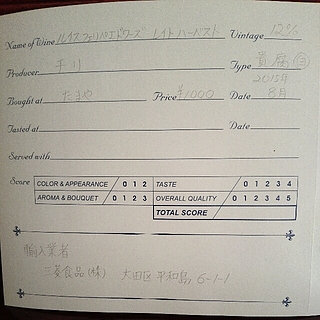 Name of Wine ルイス フェリペ エドワーズ レイト ハーベスト Vintage 12%
Producer チリ Type 貴腐 白
Bought at たまや Price ¥1000 Date 2015年 8月
Tasted at Date
Served with
Score COLOR & APPEARANCE 0 1 2 TASTE 0 1 2 3 4
AROMA & BOUQUET 0 1 2 3 OVERALL QUALITY 0 1 2 3 4 5
TOTAL SCORE
輸入業者
三菱食品(株) 大田区 平和島, 6-1-1